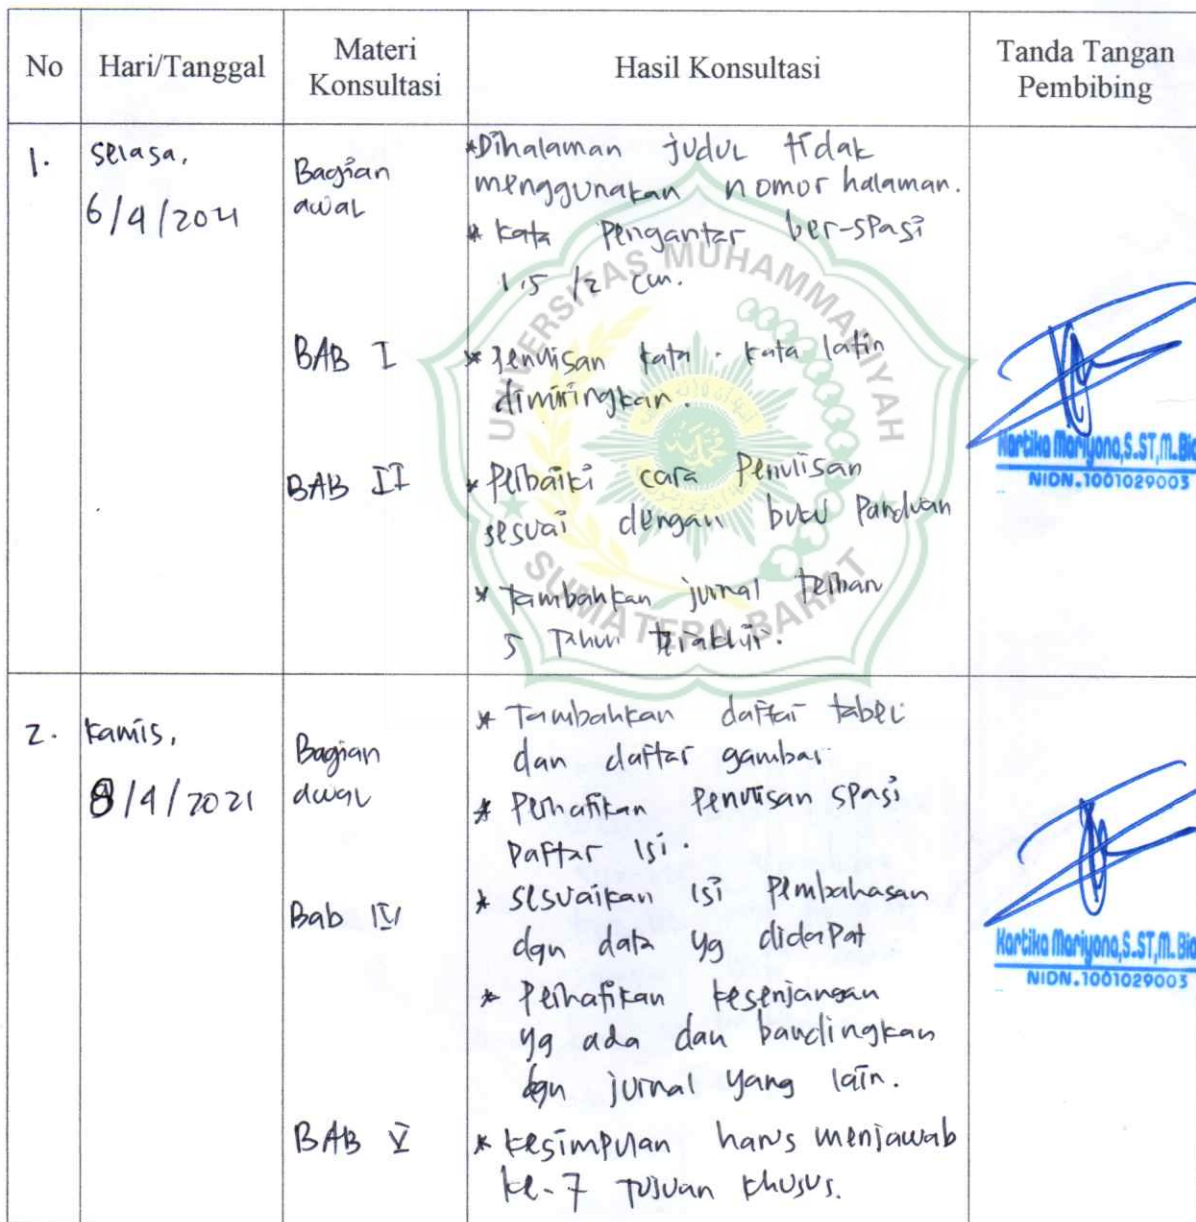 No
Hari/Tanggal
Materi
Konsultasi
Hasil Konsultasi
Tanda Tangan
Pembibing
1.
Selasa,
6/4/2021
Bagian
awal
*Dihalaman judul tidak
menggunakan nomor halaman.
* Kata Pengantar ber-spasi
1.5 /2 cm.
BAB I
* Penulisan kata-kata latin
dimiringkan.
BAB II
* Perbaiki cara Penulisan
sesuai dengan buku Panduan
* Tambahkan jurnal
5 Tahun terakhir.
Kartika Mariyona,S.ST,M.Bio
NIDN.1001029003
UNIVERSITAS MUHAMMADIYAH
SUMATERA BARAT
2.
Kamis,
8/4/2021
Bagian
awal
* Tambahkan daftar tabel
dan daftar gambar
* Perhatikan Penulisan spasi
Daftar Isi.
Bab IV
* Sesuaikan isi Pembahasan
dgn data yg didapat
* Perhatikan kesenjangan
yg ada dan bandingkan
dgn jurnal yang lain.
BAB V
* Kesimpulan harus menjawab
ke-7 Tujuan Khusus.
Kartika Mariyona,S.ST,M.Bio
NIDN.1001029003